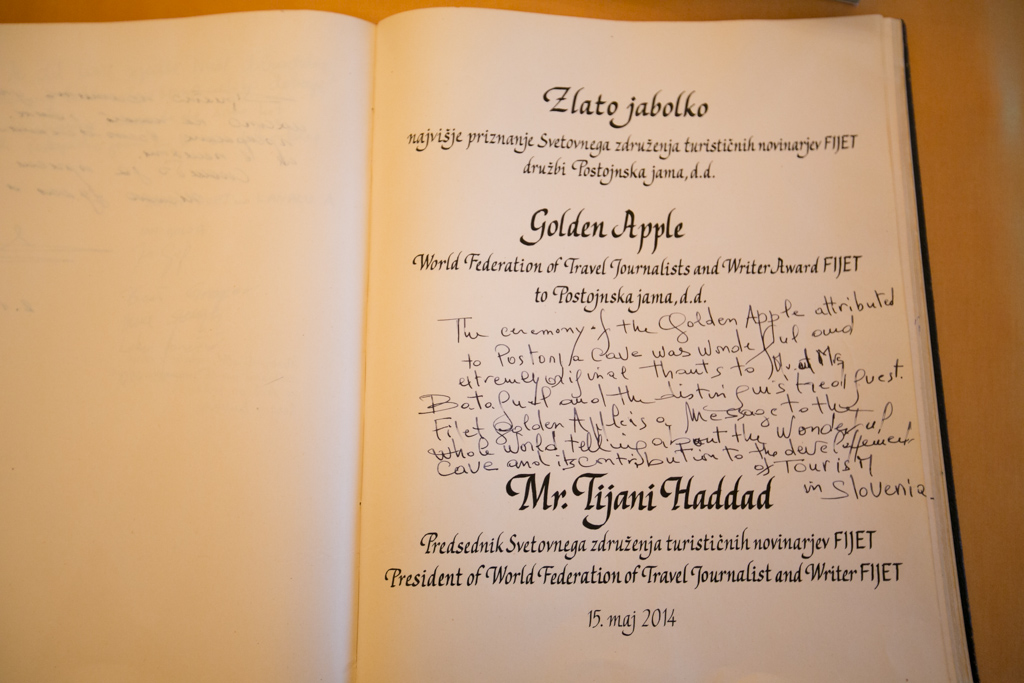 Zlato jabolko
najvišje priznanje Svetovnega združenja turističnih novinarjev FIJET
družbi Postojnska jama, d.d.
Golden Apple
World Federation of Travel Journalists and Writer Award FIJET
to Postojnska jama, d.d.
The ceremony of the Golden Apple attributed
to Postonja Cave was wonderful and
extremely original thanks to Mr. and Mrs
and the distinguished guest.
Fijet Golden Apple is a Message to the
whole world telling about the Wonderful
Cave and its contribution to the developpement
of Tourism
in Slovenia.
Mr. Tijani Haddad
Predsednik Svetovnega združenja turističnih novinarjev FIJET
President of World Federation of Travel Journalist and Writer FIJET
15. maj 2014